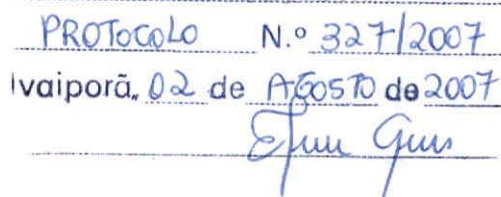 PROTOCOLO N.º 327/2007
Ivaiporã, 02 de AGOSTO de 2007